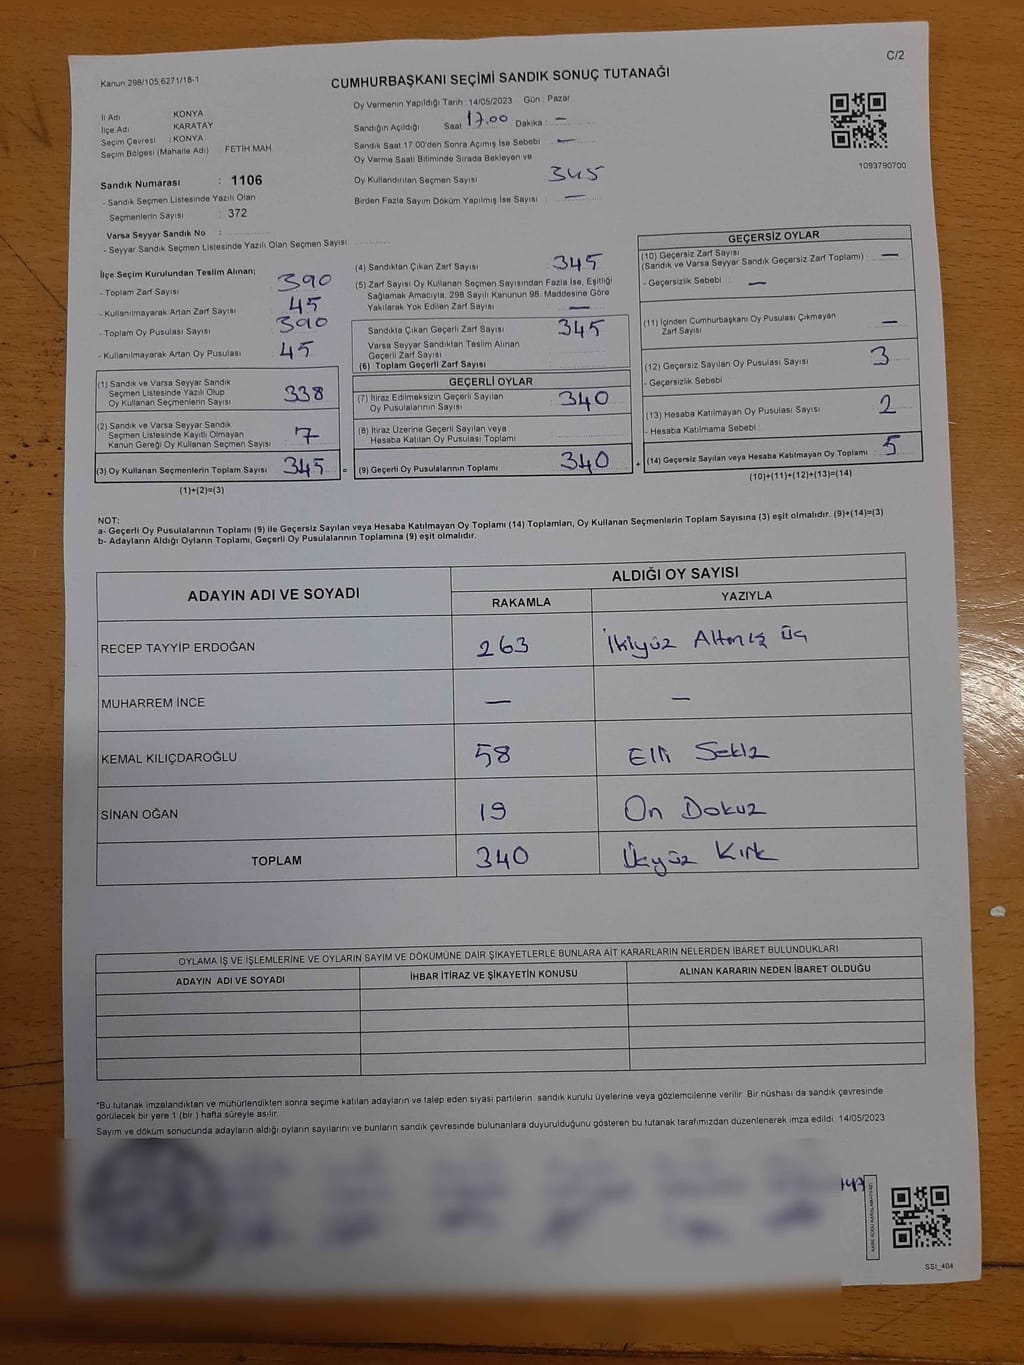 C/2
Kanun:298/105,6271/18-1
CUMHURBAŞKANI SEÇİMİ SANDIK SONUÇ TUTANAĞI
İl Adı : KONYA
İlçe Adı : KARATAY
Seçim Çevresi : KONYA
Seçim Bölgesi (Mahalle Adı) : FETİH MAH
Sandık Numarası : 1106
- Sandık Seçmen Listesinde Yazılı Olan
Seçmenlerin Sayısı : 372
Varsa Seyyar Sandık No :
- Seyyar Sandık Seçmen Listesinde Yazılı Olan Seçmen Sayısı:
Oy Vermenin Yapıldığı Tarih : 14/05/2023 Gün : Pazar
Sandığın Açıldığı Saat 17.00 Dakika : —
Sandık Saat 17:00'den Sonra Açımış İse Sebebi : —
Oy Verme Saati Bitiminde Sırada Bekleyen ve
Oy Kullandırılan Seçmen Sayısı : 345
Birden Fazla Sayım Döküm Yapılmış İse Sayısı : —
1093790700
İlçe Seçim Kurulundan Teslim Alınan;
- Toplam Zarf Sayısı 390
- Kullanılmayarak Artan Zarf Sayısı 45
- Toplam Oy Pusulası Sayısı 390
- Kullanılmayarak Artan Oy Pusulası 45
(1) Sandık ve Varsa Seyyar Sandık
Seçmen Listesinde Yazılı Olup
Oy Kullanan Seçmenlerin Sayısı 338
(2) Sandık ve Varsa Seyyar Sandık
Seçmen Listesinde Kayıtlı Olmayan
Kanun Gereği Oy Kullanan Seçmen Sayısı 7
(3) Oy Kullanan Seçmenlerin Toplam Sayısı 345 =
(1)+(2)=(3)
(4) Sandıktan Çıkan Zarf Sayısı 345
(5) Zarf Sayısı Oy Kullanan Seçmen Sayısından Fazla İse, Eşitliği
Sağlamak Amacıyla, 298 Sayılı Kanunun 98. Maddesine Göre
Yakılarak Yok Edilen Zarf Sayısı —
Sandıkta Çıkan Geçerli Zarf Sayısı 345
Varsa Seyyar Sandıktan Teslim Alınan
Geçerli Zarf Sayısı
(6) Toplam Geçerli Zarf Sayısı
GEÇERLİ OYLAR
(7) İtiraz Edilmeksizin Geçerli Sayılan
Oy Pusulalarının Sayısı 340
(8) İtiraz Üzerine Geçerli Sayılan veya
Hesaba Katılan Oy Pusulası Toplamı
(9) Geçerli Oy Pusulalarının Toplamı 340 +
GEÇERSİZ OYLAR
(10) Geçersiz Zarf Sayısı
(Sandık ve Varsa Seyyar Sandık Geçersiz Zarf Toplamı) : —
- Geçersizlik Sebebi : —
(11) İçinden Cumhurbaşkanı Oy Pusulası Çıkmayan
Zarf Sayısı —
(12) Geçersiz Sayılan Oy Pusulası Sayısı 3
- Geçersizlik Sebebi
(13) Hesaba Katılmayan Oy Pusulası Sayısı 2
- Hesaba Katılmama Sebebi :
(14) Geçersiz Sayılan veya Hesaba Katılmayan Oy Toplamı : 5
(10)+(11)+(12)+(13)=(14)
NOT:
a- Geçerli Oy Pusulalarının Toplamı (9) ile Geçersiz Sayılan veya Hesaba Katılmayan Oy Toplamı (14) Toplamları, Oy Kullanan Seçmenlerin Toplam Sayısına (3) eşit olmalıdır. (9)+(14)=(3)
b- Adayların Aldığı Oyların Toplamı, Geçerli Oy Pusulalarının Toplamına (9) eşit olmalıdır.
ADAYIN ADI VE SOYADI ALDIĞI OY SAYISI
RAKAMLA YAZIYLA
RECEP TAYYİP ERDOĞAN 263 İkiyüz Altmış Üç
MUHARREM İNCE — —
KEMAL KILIÇDAROĞLU 58 Elli Sekiz
SİNAN OĞAN 19 On Dokuz
TOPLAM 340 Üçyüz Kırk
OYLAMA İŞ VE İŞLEMLERİNE VE OYLARIN SAYIM VE DÖKÜMÜNE DAİR ŞİKAYETLERLE BUNLARA AİT KARARLARIN NELERDEN İBARET BULUNDUKLARI
ADAYIN ADI VE SOYADI İHBAR İTİRAZ VE ŞİKAYETİN KONUSU ALINAN KARARIN NEDEN İBARET OLDUĞU
*Bu tutanak imzalandıktan ve mühürlendikten sonra seçime katılan adayların ve talep eden siyasi partilerin sandık kurulu üyelerine veya gözlemcilerine verilir. Bir nüshası da sandık çevresinde
görülecek bir yere 1 (bir ) hafta süreyle asılır.
Sayım ve döküm sonucunda adayların aldığı oyların sayılarını ve bunların sandık çevresinde bulunanlara duyurulduğunu gösteren bu tutanak tarafımızdan düzenlenerek imza edildi. 14/05/2023
SSI_404